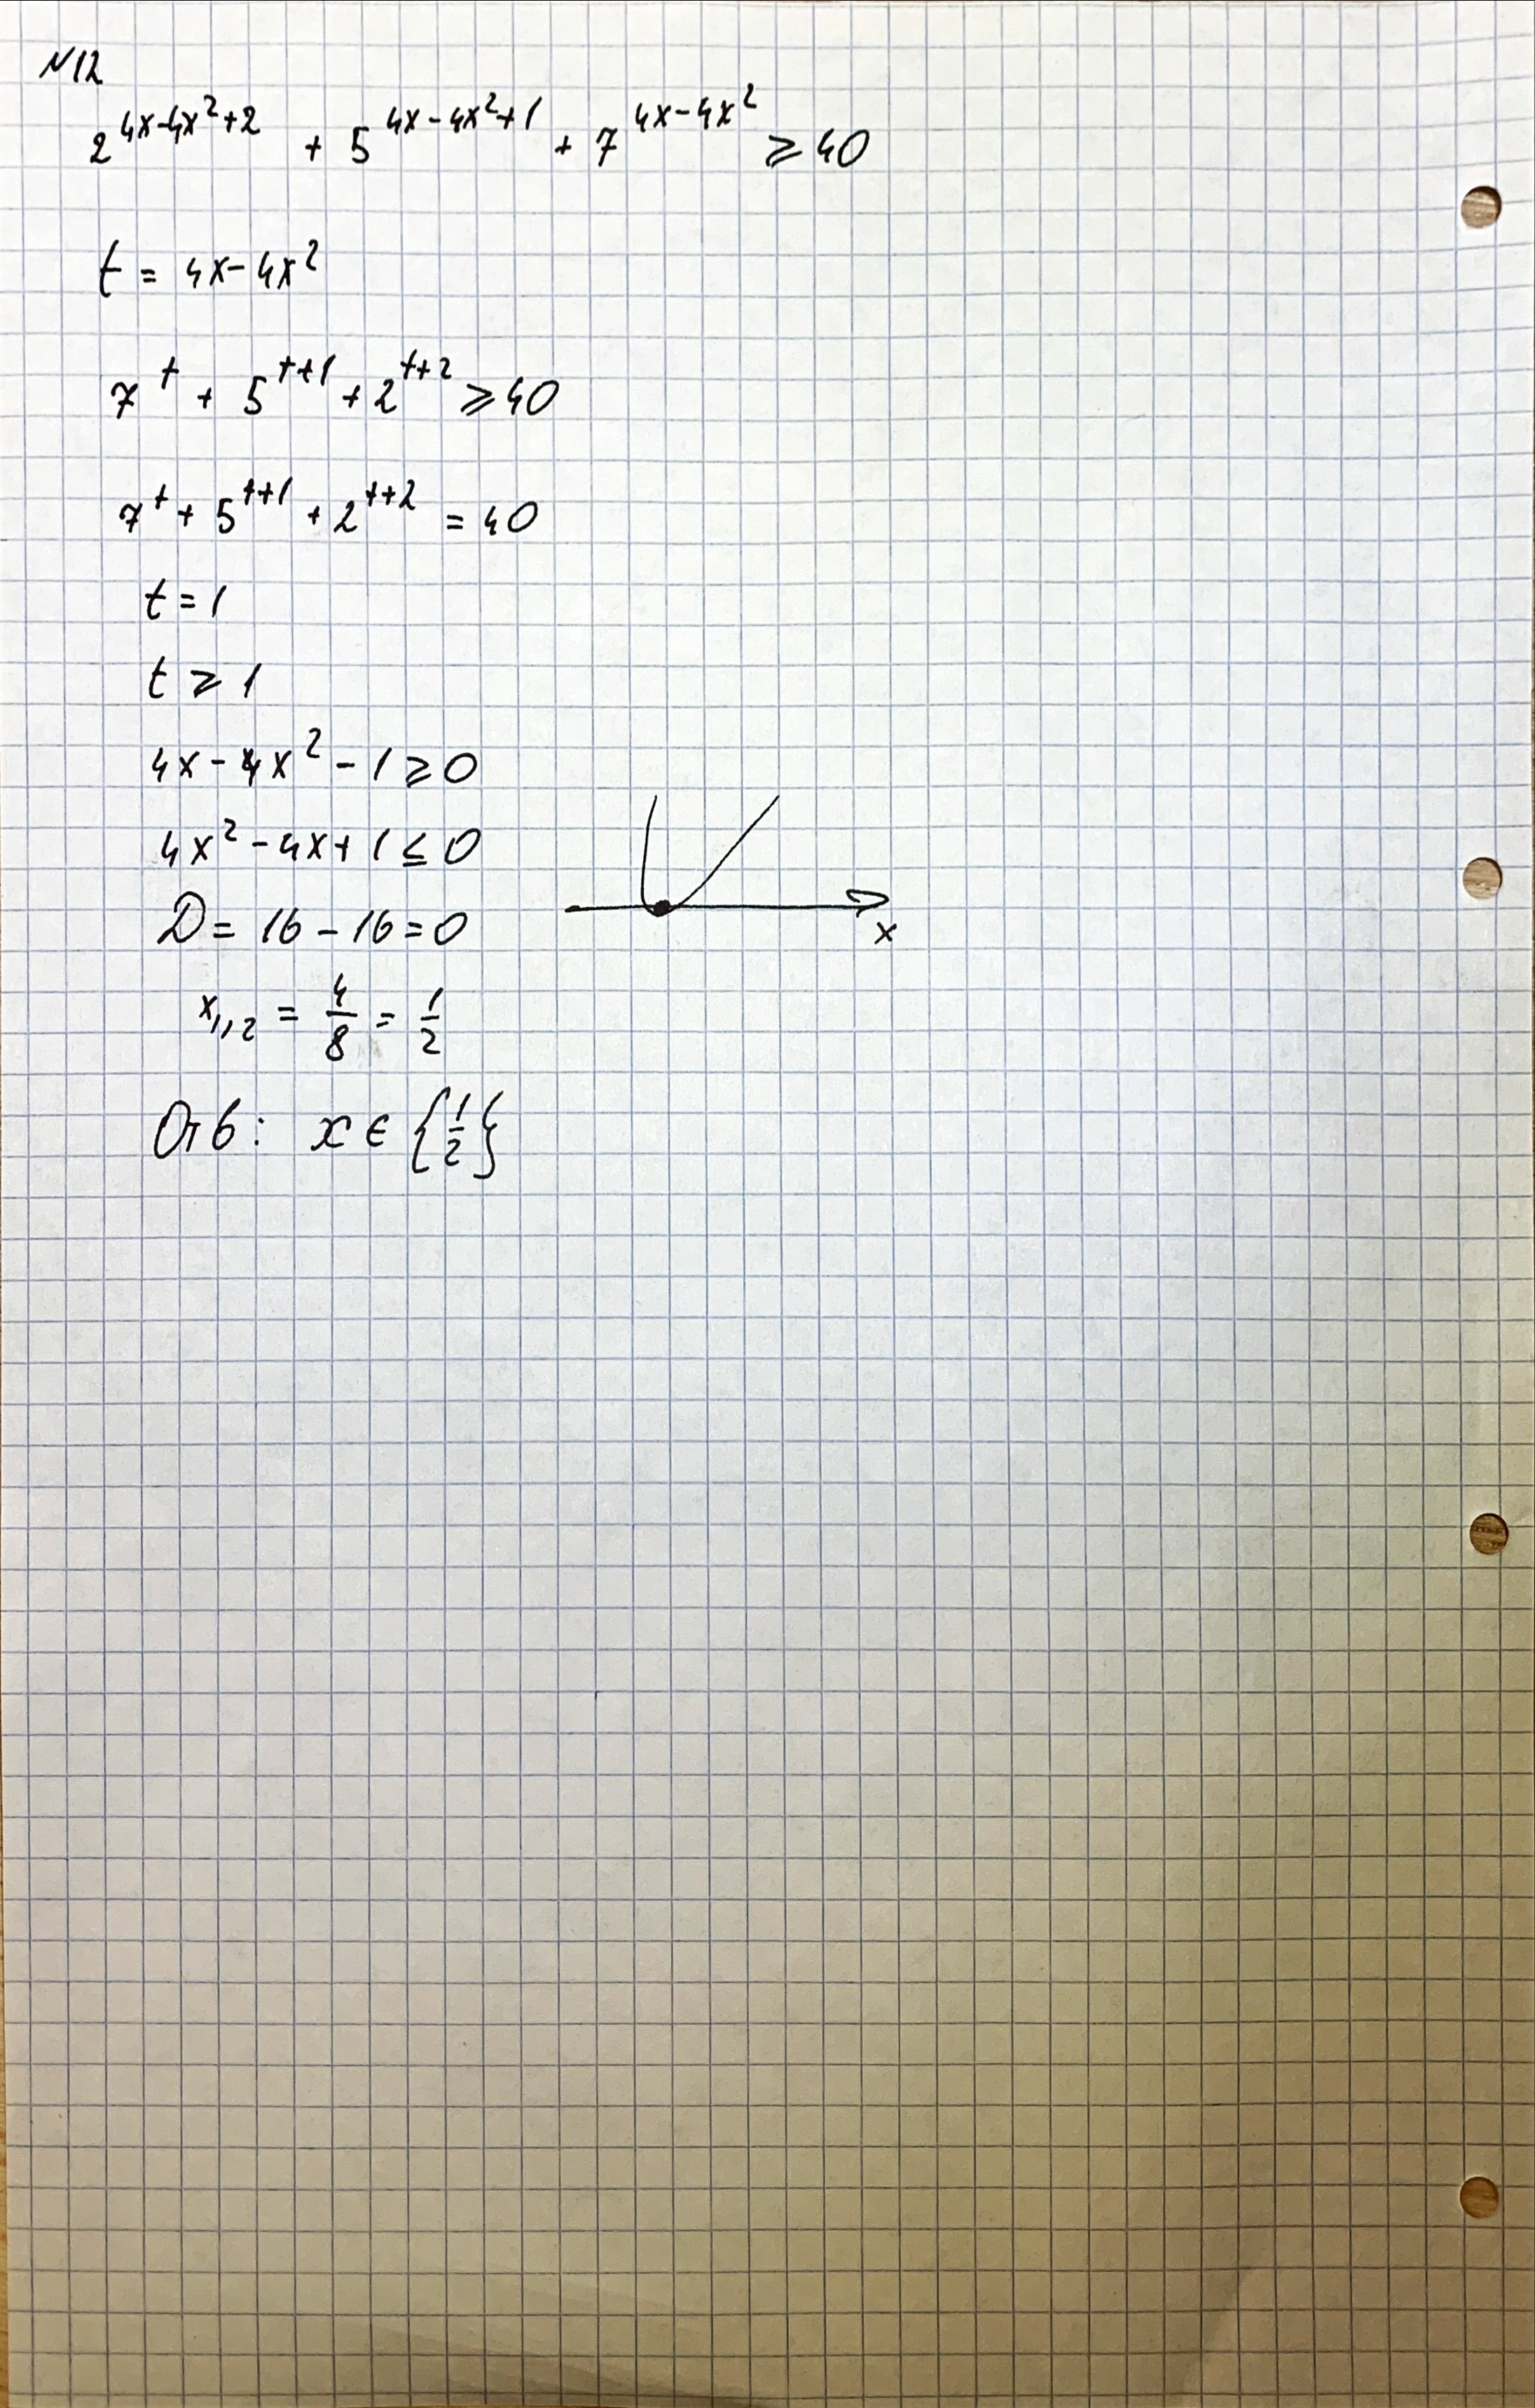 N12
2^{4x-4x^2+2} + 5^{4x-4x^2+1} + 7^{4x-4x^2} ⩾ 40
t = 4x-4x^2
7^t + 5^{t+1} + 2^{t+2} ⩾ 40
7^t + 5^{t+1} + 2^{t+2} = 40
t = 1
t ⩾ 1
4x - 4x^2 - 1 ⩾ 0
4x^2 - 4x + 1 ≤ 0
D = 16 - 16 = 0
x
x_{1,2} = 4/8 = 1/2
Отв: x ∈ {1/2}